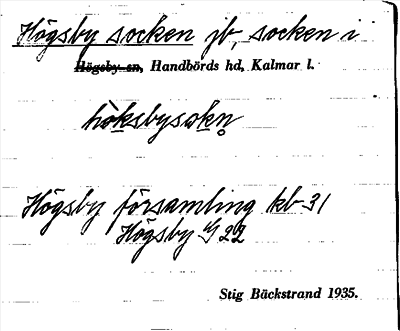 Högsby socken jb, socken i
Högsby sn, Handbörds hd, Kalmar l.
hòksbysok̥n̥
Högsby församling kb 31
Högsby G 22
Stig Bäckstrand 1935.